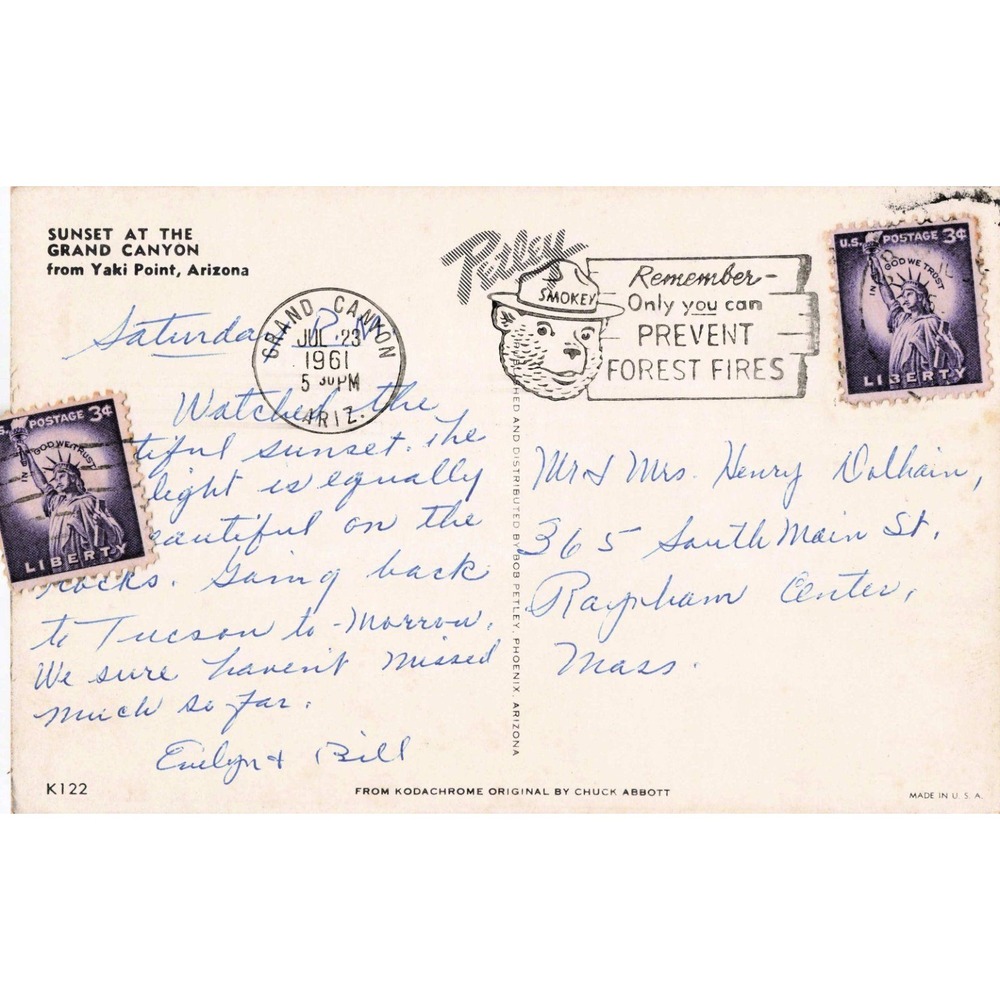 SUNSET AT THE
GRAND CANYON
from Yaki Point, Arizona
Petley
Saturday P.M.
GRAND CANYON
JUL 23
1961
5 30 PM
ARIZ.
SMOKEY
Remember -
Only you can
PREVENT
FOREST FIRES
U.S. POSTAGE 3¢
IN GOD WE TRUST
LIBERTY
U.S. POSTAGE 3¢
IN GOD WE TRUST
LIBERTY
Watched the
tiful sunset. The
light is equally
eautiful on the
rocks. Going back
to Tucson to-morrow.
We sure haven't missed
much so far.
Evelyn & Bill
Mr & Mrs. Henry
365 South Main St.
Raynham Center,
Mass.
HED AND DISTRIBUTED BY BOB PETLEY, PHOENIX, ARIZONA
K122
FROM KODACHROME ORIGINAL BY CHUCK ABBOTT
MADE IN U. S. A.